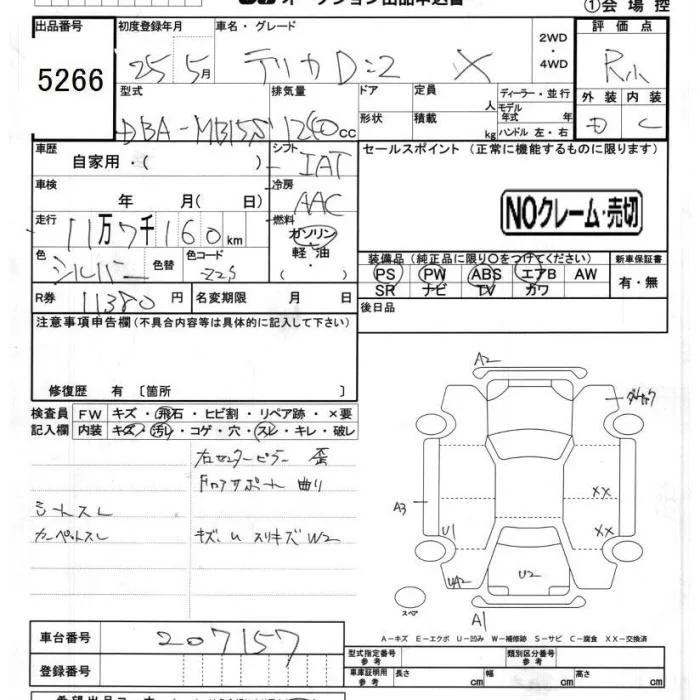 オークション出品申込書
①会場控
出品番号 5266
初度登録年月 25 5月
車名・グレード デリカD:2 X
2WD・4WD
評価点 R小
外装 D 内装 C
型式 DBA-MB15S
排気量 1240cc
ドア 形状
定員 人
積載 kg
ディーラー・並行
モデル年式 年
ハンドル 左・右
車歴 自家用・( )
シフト IAT
セールスポイント (正常に機能するものに限ります)
車検 年 月( 日)
冷房 AAC
NOクレーム・売切
走行 11万7千160km
燃料 ガソリン 軽油 ・( )
色 シルバー 色替 色コード Z2S
装備品(純正品に限り○をつけてください)
PS PW ABS エアB AW
SR ナビ TV カワ
新車保証書 有・無
R券 11380円
名変期限 月 日
後日品
注意事項申告欄(不具合内容等は具体的に記入して下さい)
修復歴 有 〔箇所 〕
検査員記入欄
FW キズ・飛石・ヒビ割・リペア跡・×要
内装 キズ・汚レ・コゲ・穴・スレ・キレ・破レ
右センターピラー 歪
ドロアサポート 曲り
シートスレ
カーペットスレ
キズ、U スリキズ W2
A2
A3
XX
XX
U1
UA2
U2
スペア
A1
A-キズ E-エクボ U-凹み W-補修跡 S-サビ C-腐食 XX-交換済
車台番号 207157
登録番号
型式指定番号 参考
類別区分番号 参考
車庫証明用 参考 長さ cm 幅 cm 高さ cm